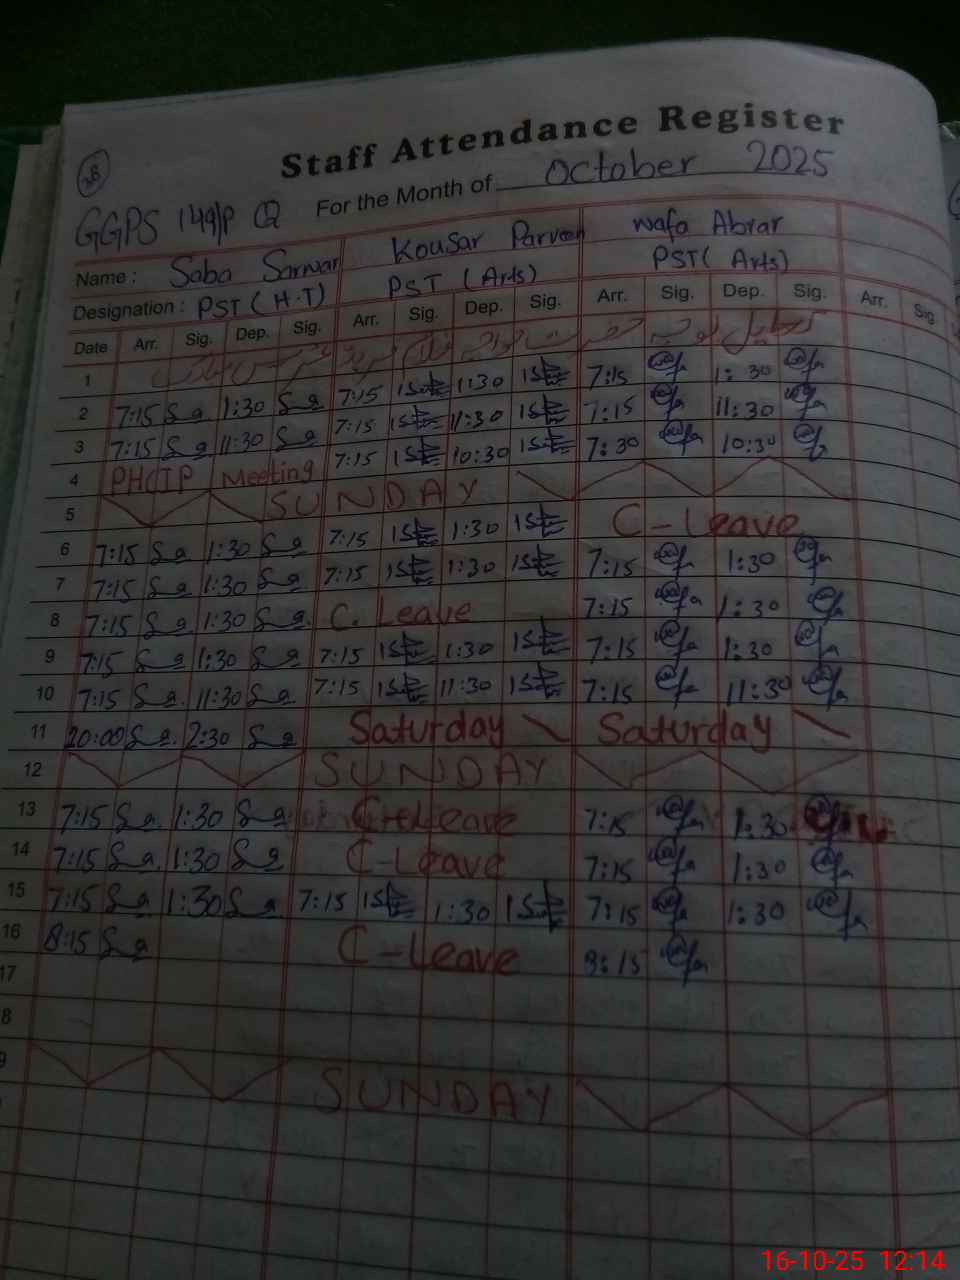 Staff Attendance Register
For the Month of October 2025
GGPS 149/P Q
Name : Saba Sarwar Kousar Parveen Wafa Abrar
Designation : PST (H.T) PST (Arts) PST( Arts)
Date Arr. Sig. Dep. Sig. Arr. Sig. Dep. Sig. Arr. Sig. Dep. Sig. Arr. Sig
1
2 7:15 1:30 7:15 1:30 7:15 1:30
3 7:15 11:30 7:15 11:30 7:15 11:30
4 PHCIP Meeting 7:15 10:30 7:30 10:30
5 SUNDAY
6 7:15 1:30 7:15 1:30 C-Leave
7 7:15 1:30 7:15 1:30 7:15 1:30
8 7:15 1:30 C. Leave 7:15 1:30
9 7:15 1:30 7:15 1:30 7:15 1:30
10 7:15 11:30 7:15 11:30 7:15 11:30
11 2:30 Saturday Saturday
12 SUNDAY
13 7:15 1:30 C-Leave 7:15 1:30
14 7:15 1:30 C-Leave 7:15 1:30
15 7:15 1:30 7:15 1:30 7:15 1:30
16 8:15 C-Leave 8:15
17
8
9 SUNDAY
16-10-25 12:14